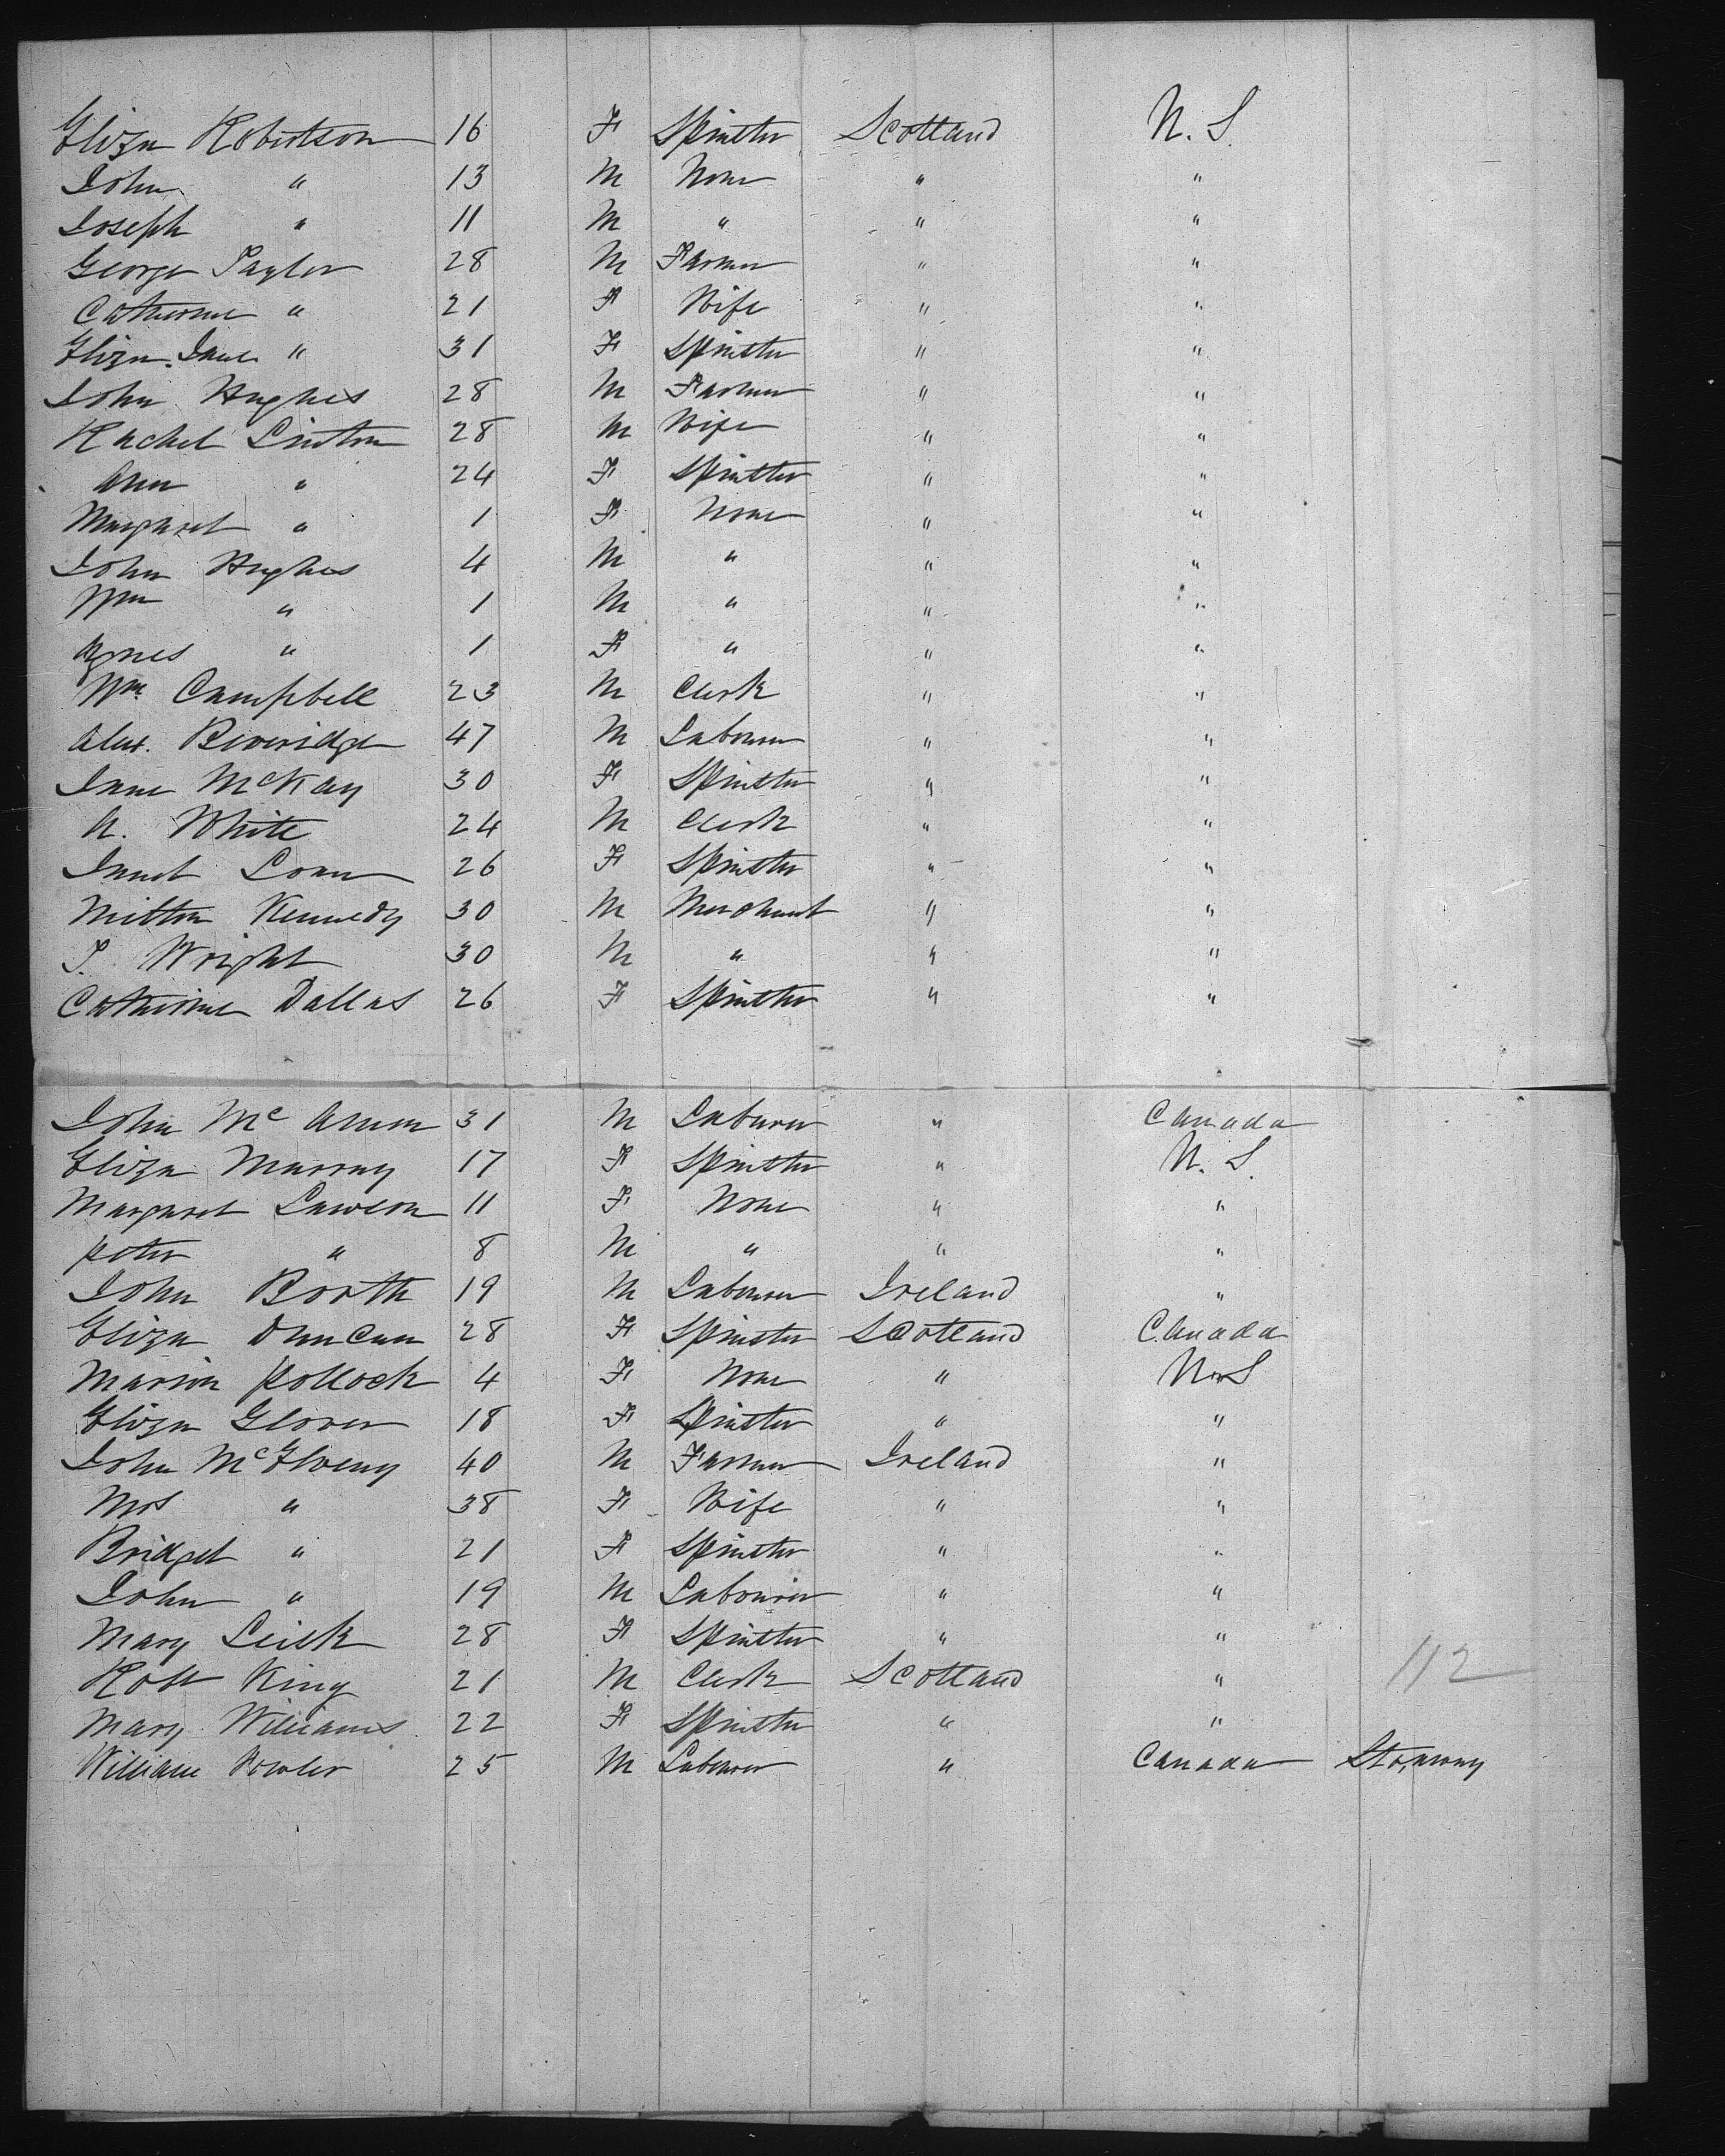 Eliza Robertson 16 F Spinster Scotland N. S.
John " 13 M None " "
Joseph " 11 M " " "
George Taylor 28 M Farmer " "
Catherine " 21 F Wife " "
Eliza Jane " 31 F Spinster " "
John Hughes 28 M Farmer " "
Rachel Linton 28 M Wife " "
Ann " 24 F Spinster " "
Margaret " 1 F None " "
John Hughes 4 M " " "
Wm " 1 M " " "
Agnes " 1 F " " "
Wm. Campbell 23 M Clerk " "
Alex. Beveridge 47 M Labourer " "
Jane McKay 30 F Spinster " "
A. White 24 M Clerk " "
Janet 26 F Spinster " "
Milton Kennedy 30 M Merchant " "
Wright 30 M " " "
Catherine Dallas 26 F Spinster " "
John Mc 31 M Labourer " Canada
Eliza Murray 17 F Spinster " N. S.
Margaret Lawson 11 F None " "
Peter " 8 M " " "
John Booth 19 M Labourer Ireland "
Eliza Duncan 28 F Spinster Scotland Canada
Marion Pollock 4 F None " N S
Eliza Glover 18 F Spinster " "
John McElveny 40 M Farmer Ireland "
Mrs " 38 F Wife " "
Bridget " 21 F Spinster " "
John " 19 M Labourer " "
Mary Leisk 28 F Spinster " "
Robt King 21 M Clerk Scotland "
112
Mary Williams 22 F Spinster " "
William 25 M Labourer " Canada